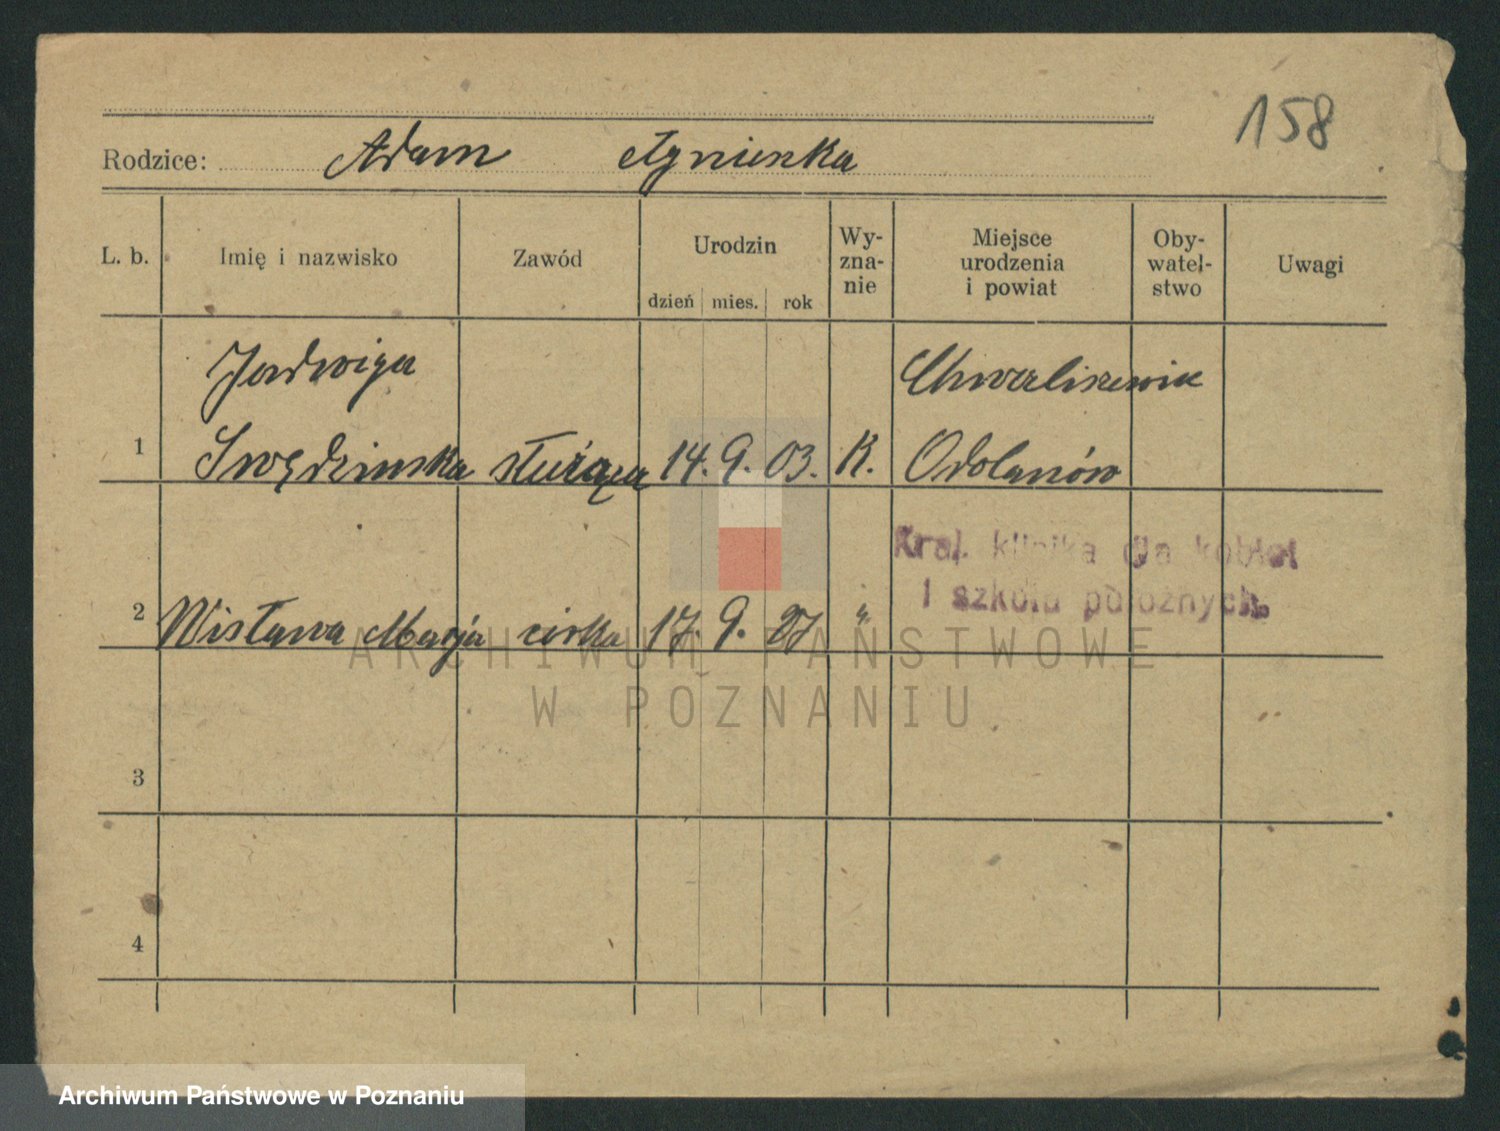 158
Rodzice: Adam Agnieszka
L. b. Imię i nazwisko Zawód Urodzin Wy-
zna-
nie Miejsce
urodzenia
i powiat Oby-
watel-
stwo Uwagi
dzień mies. rok
Jadwiga Chwaliszewie
1 Swędzinska służąca 14. 9. 03. K. Odolanów
Kraj. klinika dla kobiet
i szkoła położnych.
2 Wisława Marja córka 17. 9. 27 "
ARCHIWUM PAŃSTWOWE
W POZNANIU
3
4
Archiwum Państwowe w Poznaniu